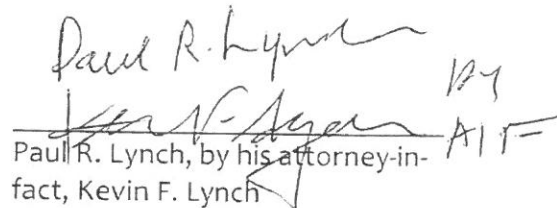 Paul R. Lynch
Kevin F. Lynch by
AIF
Paul R. Lynch, by his attorney-in-
fact, Kevin F. Lynch